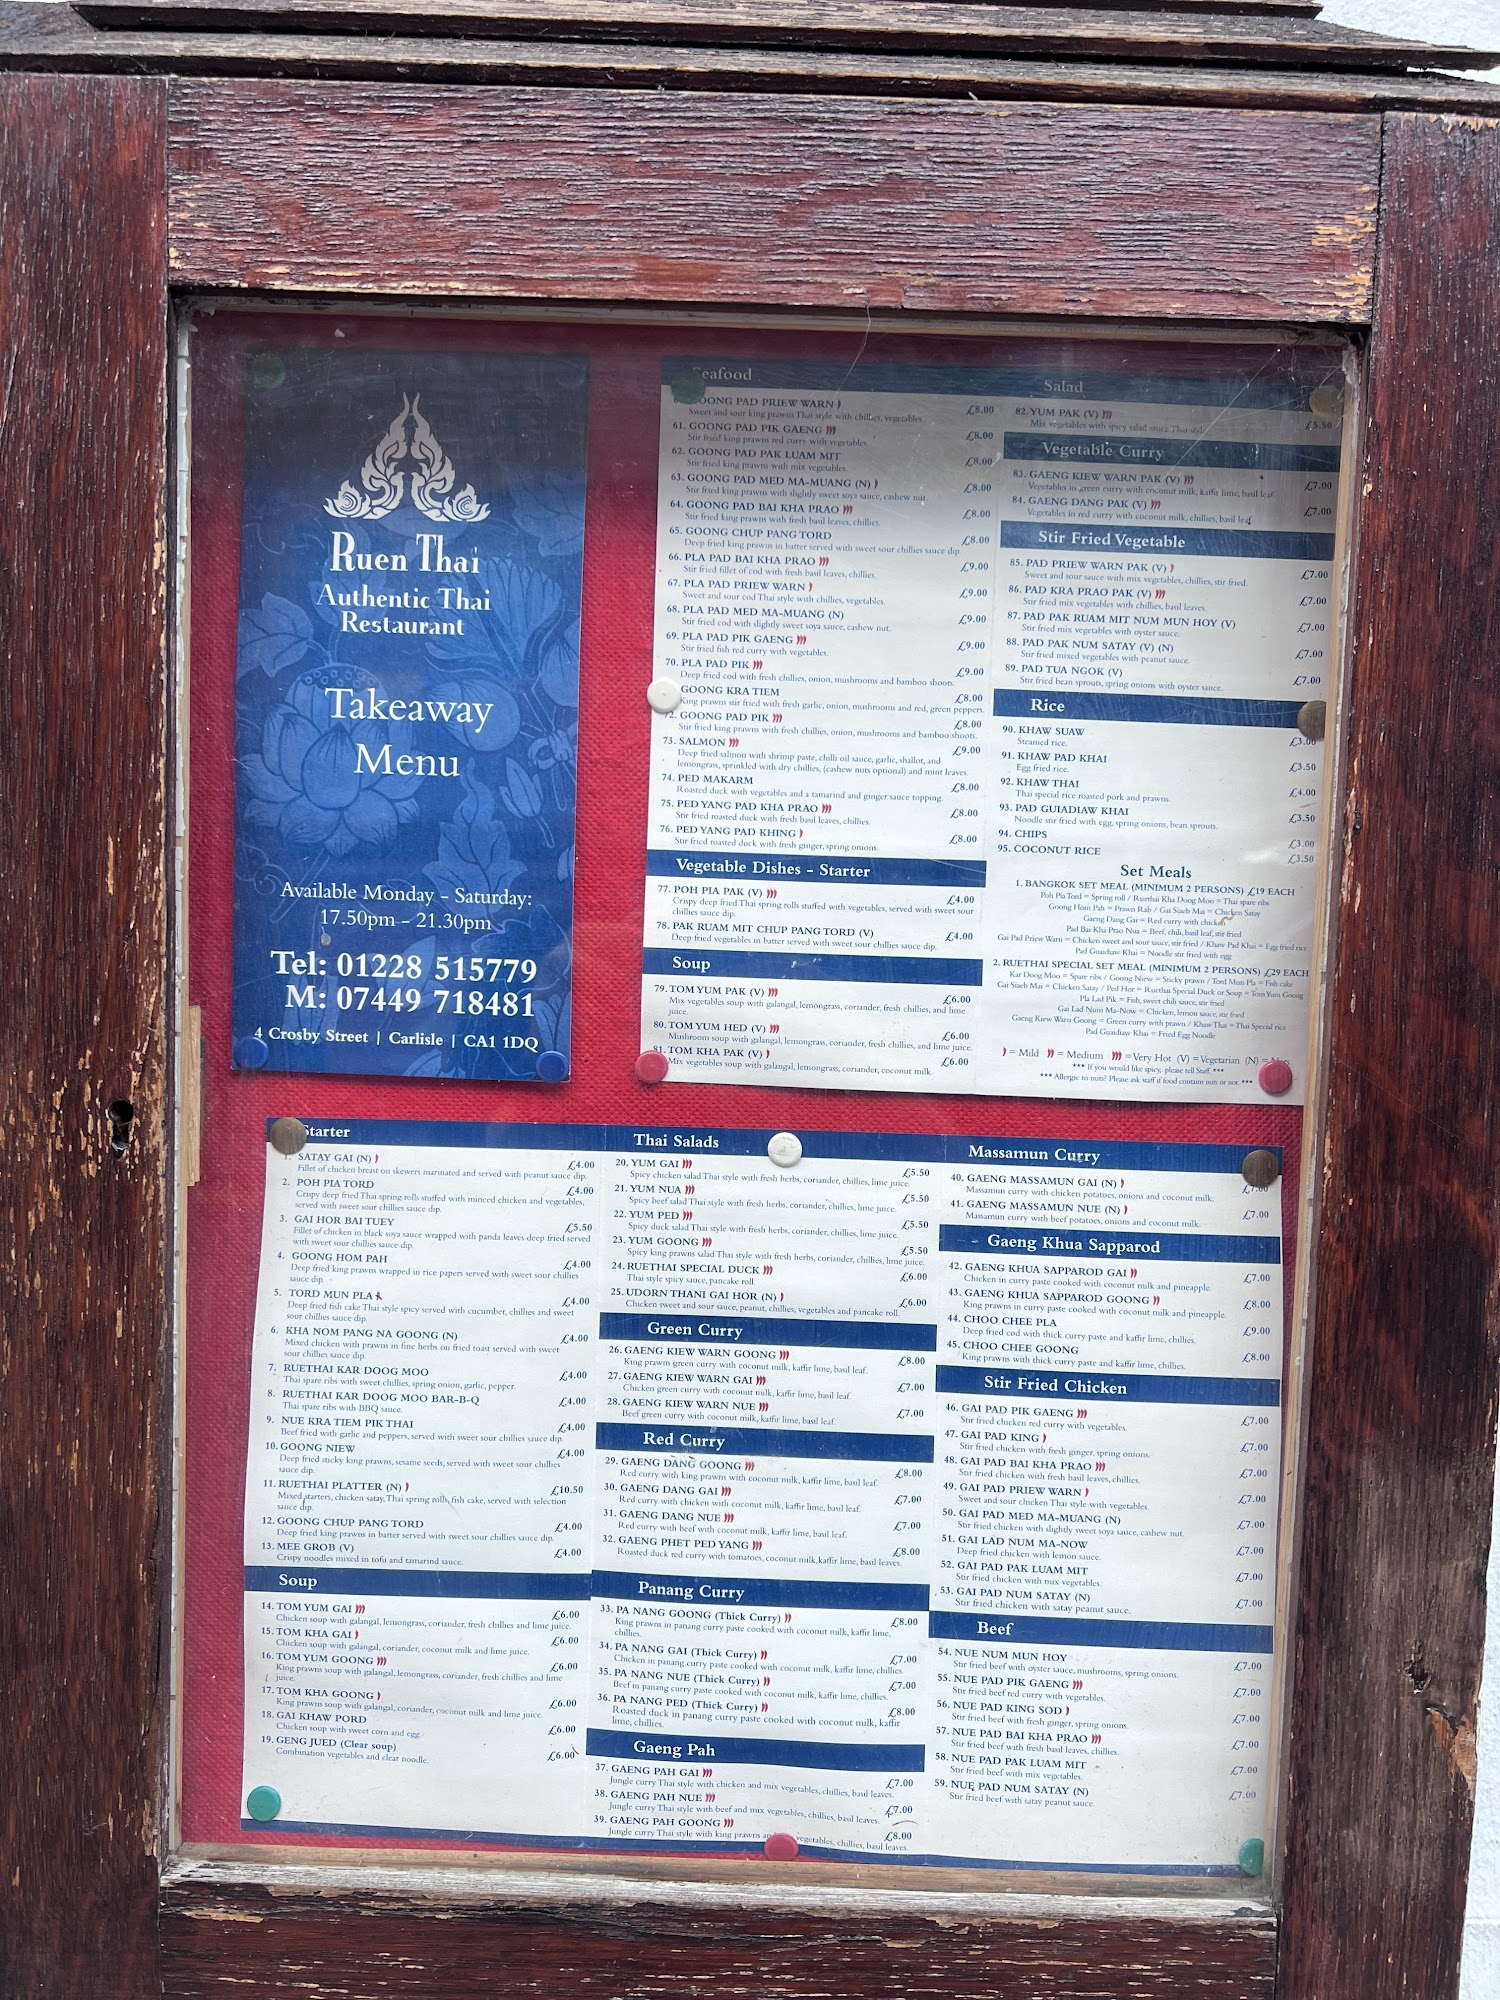 Ruen Thai
Authentic Thai
Restaurant
Takeaway
Menu
Available Monday - Saturday:
17.50pm - 21.30pm
Tel: 01228 515779
M: 07449 718481
4 Crosby Street | Carlisle | CA1 1DQ
Seafood
GOONG PAD PRIEW WARN £8.00
Sweet and sour king prawns Thai style with chillies, vegetables.
61. GOONG PAD PIK GAENG £8.00
Stir fried king prawns red curry with vegetables.
62. GOONG PAD PAK LUAM MIT £8.00
Stir fried king prawns with mix vegetables.
63. GOONG PAD MED MA-MUANG (N) £8.00
Stir fried king prawns with slightly sweet soya sauce, cashew nut.
64. GOONG PAD BAI KHA PRAO £8.00
Stir fried king prawns with fresh basil leaves, chillies.
65. GOONG CHUP PANG TORD £8.00
Deep fried king prawns in batter served with sweet sour chillies sauce dip.
66. PLA PAD BAI KHA PRAO £9.00
Stir fried fillet of cod with fresh basil leaves, chillies.
67. PLA PAD PRIEW WARN £9.00
Sweet and sour cod Thai style with chillies, vegetables.
68. PLA PAD MED MA-MUANG (N) £9.00
Stir fried cod with slightly sweet soya sauce, cashew nut.
69. PLA PAD PIK GAENG £9.00
Stir fried fish red curry with vegetables.
70. PLA PAD PIK £9.00
Deep fried cod with fresh chillies, onion, mushrooms and bamboo shoots.
GOONG KRA TIEM £8.00
King prawns stir fried with fresh garlic, onion, mushrooms and red, green peppers.
72. GOONG PAD PIK £8.00
Stir fried king prawns with fresh chillies, onion, mushrooms and bamboo shoots.
73. SALMON £9.00
Deep fried salmon with shrimp paste, chilli oil sauce, garlic, shallot, and
lemongrass, sprinkled with dry chillies, (cashew nuts optional) and mint leaves.
74. PED MAKARM £8.00
Roasted duck with vegetables and a tamarind and ginger sauce topping.
75. PED YANG PAD KHA PRAO £8.00
Stir fried roasted duck with fresh basil leaves, chillies.
76. PED YANG PAD KHING £8.00
Stir fried roasted duck with fresh ginger, spring onions.
Vegetable Dishes - Starter
77. POH PIA PAK (V) £4.00
Crispy deep fried Thai spring rolls stuffed with vegetables, served with sweet sour
chillies sauce dip.
78. PAK RUAM MIT CHUP PANG TORD (V) £4.00
Deep fried vegetables in batter served with sweet sour chillies sauce dip.
Soup
79. TOM YUM PAK (V) £6.00
Mix vegetables soup with galangal, lemongrass, coriander, fresh chillies, and lime
juice.
80. TOM YUM HED (V) £6.00
Mushroom soup with galangal, lemongrass, coriander, fresh chillies, and lime juice.
81. TOM KHA PAK (V) £6.00
Mix vegetables soup with galangal, lemongrass, coriander, coconut milk.
Salad
82. YUM PAK (V) £5.50
Mix vegetables with spicy salad sauce Thai style
Vegetable Curry
83. GAENG KIEW WARN PAK (V) £7.00
Vegetables in green curry with coconut milk, kaffir lime, basil leaf.
84. GAENG DANG PAK (V) £7.00
Vegetables in red curry with coconut milk, chillies, basil leaf
Stir Fried Vegetable
85. PAD PRIEW WARN PAK (V) £7.00
Sweet and sour sauce with mix vegetables, chillies, stir fried.
86. PAD KRA PRAO PAK (V) £7.00
Stir fried mix vegetables with chillies, basil leaves.
87. PAD PAK RUAM MIT NUM MUN HOY (V) £7.00
Stir fried mix vegetables with oyster sauce.
88. PAD PAK NUM SATAY (V) (N) £7.00
Stir fried mixed vegetables with peanut sauce.
89. PAD TUA NGOK (V) £7.00
Stir fried bean sprouts, spring onions with oyster sauce.
Rice
90. KHAW SUAW £3.00
Steamed rice.
91. KHAW PAD KHAI £3.50
Egg fried rice.
92. KHAW THAI £4.00
Thai special rice roasted pork and prawns.
93. PAD GUIADIAW KHAI £3.50
Noodle stir fried with egg, spring onions, bean sprouts.
94. CHIPS £3.00
95. COCONUT RICE £3.50
Set Meals
1. BANGKOK SET MEAL (MINIMUM 2 PERSONS) £19 EACH
Poh Pia Tord = Spring roll / Ruethai Kha Doog Moo = Thai spare ribs
Goong Hom Pah = Prawn Rab / Gai Siaeb Mai = Chicken Satay
Gaeng Dang Gai = Red curry with chicken
Pad Bai Kha Prao Nua = Beef, chili, basil leaf, stir fried
Gai Pad Priew Warn = Chicken sweet and sour sauce, stir fried / Khaw Pad Khai = Egg fried rice
Pad Guaidaw Khai = Noodle stir fried with egg
2. RUETHAI SPECIAL SET MEAL (MINIMUM 2 PERSONS) £29 EACH
Kar Doog Moo = Spare ribs / Goong Niew = Sticky prawn / Tord Mun Pla = Fish cake
Gai Siaeb Mai = Chicken Satay / Ped Hot = Ruethai Special Duck or Soup = Tom Yum Goong
Pla Lad Pik = Fish, sweet chili sauce, stir fried
Gai Lad Num Ma-Now = Chicken, lemon sauce, stir fried
Gaeng Kiew Warn Goong = Green curry with prawn / Khaw Thai = Thai Special rice
Pad Guaidaw Khai = Fried Egg Noodle
= Mild = Medium = Very Hot (V) = Vegetarian (N) = Nuts
*** If you would like spicy, please tell Staff ***
*** Allergic to nuts? Please ask staff if food contains nuts or not. ***
Starter
1. SATAY GAI (N) £4.00
Fillet of chicken breast on skewers marinated and served with peanut sauce dip.
2. POH PIA TORD £4.00
Crispy deep fried Thai spring rolls stuffed with minced chicken and vegetables,
served with sweet sour chillies sauce dip.
3. GAI HOR BAI TUEY £5.50
Fillet of chicken in black soya sauce wrapped with panda leaves deep fried served
with sweet sour chillies sauce dip.
4. GOONG HOM PAH £4.00
Deep fried king prawns wrapped in rice papers served with sweet sour chillies
sauce dip.
5. TORD MUN PLA £4.00
Deep fried fish cake Thai style spicy served with cucumber, chillies and sweet
sour chillies sauce dip.
6. KHA NOM PANG NA GOONG (N) £4.00
Mixed chicken with prawns in fine herbs on fried toast served with sweet
sour chillies sauce dip.
7. RUETHAI KAR DOOG MOO £4.00
Thai spare ribs with sweet chillies, spring onion, garlic, pepper.
8. RUETHAI KAR DOOG MOO BAR-B-Q £4.00
Thai spare ribs with BBQ sauce.
9. NUE KRA TIEM PIK THAI £4.00
Beef fried with garlic and peppers, served with sweet sour chillies sauce dip.
10. GOONG NIEW £4.00
Deep fried sticky king prawns, sesame seeds, served with sweet sour chillies
sauce dip.
11. RUETHAI PLATTER (N) £10.50
Mixed starters, chicken satay, Thai spring rolls, fish cake, served with selection
sauce dip.
12. GOONG CHUP PANG TORD £4.00
Deep fried king prawns in batter served with sweet sour chillies sauce dip.
13. MEE GROB (V) £4.00
Crispy noodles mixed in tofu and tamarind sauce.
Soup
14. TOM YUM GAI £6.00
Chicken soup with galangal, lemongrass, coriander, fresh chillies and lime juice.
15. TOM KHA GAI £6.00
Chicken soup with galangal, coriander, coconut milk and lime juice.
16. TOM YUM GOONG £6.00
King prawns soup with galangal, lemongrass, coriander, fresh chillies and lime
juice.
17. TOM KHA GOONG £6.00
King prawns soup with galangal, coriander, coconut milk and lime juice.
18. GAI KHAW PORD £6.00
Chicken soup with sweet corn and egg.
19. GENG JUED (Clear soup) £6.00
Combination vegetables and clear noodle.
Thai Salads
20. YUM GAI £5.50
Spicy chicken salad Thai style with fresh herbs, coriander, chillies, lime juice.
21. YUM NUA £5.50
Spicy beef salad Thai style with fresh herbs, coriander, chillies, lime juice.
22. YUM PED £5.50
Spicy duck salad Thai style with fresh herbs, coriander, chillies, lime juice.
23. YUM GOONG £5.50
Spicy king prawns salad Thai style with fresh herbs, coriander, chillies, lime juice.
24. RUETHAI SPECIAL DUCK £6.00
Thai style spicy sauce, pancake roll.
25. UDORN THANI GAI HOR (N) £6.00
Chicken sweet and sour sauce, peanut, chillies, vegetables and pancake roll.
Green Curry
26. GAENG KIEW WARN GOONG £8.00
King prawns green curry with coconut milk, kaffir lime, basil leaf.
27. GAENG KIEW WARN GAI £7.00
Chicken green curry with coconut milk, kaffir lime, basil leaf.
28. GAENG KIEW WARN NUE £7.00
Beef green curry with coconut milk, kaffir lime, basil leaf.
Red Curry
29. GAENG DANG GOONG £8.00
Red curry with king prawns with coconut milk, kaffir lime, basil leaf.
30. GAENG DANG GAI £7.00
Red curry with chicken with coconut milk, kaffir lime, basil leaf.
31. GAENG DANG NUE £7.00
Red curry with beef with coconut milk, kaffir lime, basil leaf.
32. GAENG PHET PED YANG £8.00
Roasted duck red curry with tomatoes, coconut milk,kaffir lime, basil leaves.
Panang Curry
33. PA NANG GOONG (Thick Curry) £8.00
King prawns in panang curry paste cooked with coconut milk, kaffir lime,
chillies.
34. PA NANG GAI (Thick Curry) £7.00
Chicken in panang curry paste cooked with coconut milk, kaffir lime, chillies.
35. PA NANG NUE (Thick Curry) £7.00
Beef in panang curry paste cooked with coconut milk, kaffir lime, chillies.
36. PA NANG PED (Thick Curry) £8.00
Roasted duck in panang curry paste cooked with coconut milk, kaffir
lime, chillies.
Gaeng Pah
37. GAENG PAH GAI £7.00
Jungle curry Thai style with chicken and mix vegetables, chillies, basil leaves.
38. GAENG PAH NUE £7.00
Jungle curry Thai style with beef and mix vegetables, chillies, basil leaves.
39. GAENG PAH GOONG £8.00
Jungle curry Thai style with king prawns vegetables, chillies, basil leaves.
Massamun Curry
40. GAENG MASSAMUN GAI (N) £7.00
Massamun curry with chicken potatoes, onions and coconut milk.
41. GAENG MASSAMUN NUE (N) £7.00
Massamun curry with beef potatoes, onions and coconut milk.
Gaeng Khua Sapparod
42. GAENG KHUA SAPPAROD GAI £7.00
Chicken in curry paste cooked with coconut milk and pineapple.
43. GAENG KHUA SAPPAROD GOONG £8.00
King prawns in curry paste cooked with coconut milk and pineapple.
44. CHOO CHEE PLA £9.00
Deep fried cod with thick curry paste and kaffir lime, chillies.
45. CHOO CHEE GOONG £8.00
King prawns with thick curry paste and kaffir lime, chillies.
Stir Fried Chicken
46. GAI PAD PIK GAENG £7.00
Stir fried chicken red curry with vegetables.
47. GAI PAD KING £7.00
Stir fried chicken with fresh ginger, spring onions.
48. GAI PAD BAI KHA PRAO £7.00
Stir fried chicken with fresh basil leaves, chillies.
49. GAI PAD PRIEW WARN £7.00
Sweet and sour chicken Thai style with vegetables.
50. GAI PAD MED MA-MUANG (N) £7.00
Stir fried chicken with slightly sweet soya sauce, cashew nut.
51. GAI LAD NUM MA-NOW £7.00
Deep fried chicken with lemon sauce.
52. GAI PAD PAK LUAM MIT £7.00
Stir fried chicken with mix vegetables.
53. GAI PAD NUM SATAY (N) £7.00
Stir fried chicken with satay peanut sauce.
Beef
54. NUE NUM MUN HOY £7.00
Stir fried beef with oyster sauce, mushrooms, spring onions.
55. NUE PAD PIK GAENG £7.00
Stir fried beef red curry with vegetables.
56. NUE PAD KING SOD £7.00
Stir fried beef with fresh ginger, spring onions.
57. NUE PAD BAI KHA PRAO £7.00
Stir fried beef with fresh basil leaves, chillies.
58. NUE PAD PAK LUAM MIT £7.00
Stir fried beef with mix vegetables.
59. NUE PAD NUM SATAY (N) £7.00
Stir fried beef with satay peanut sauce.